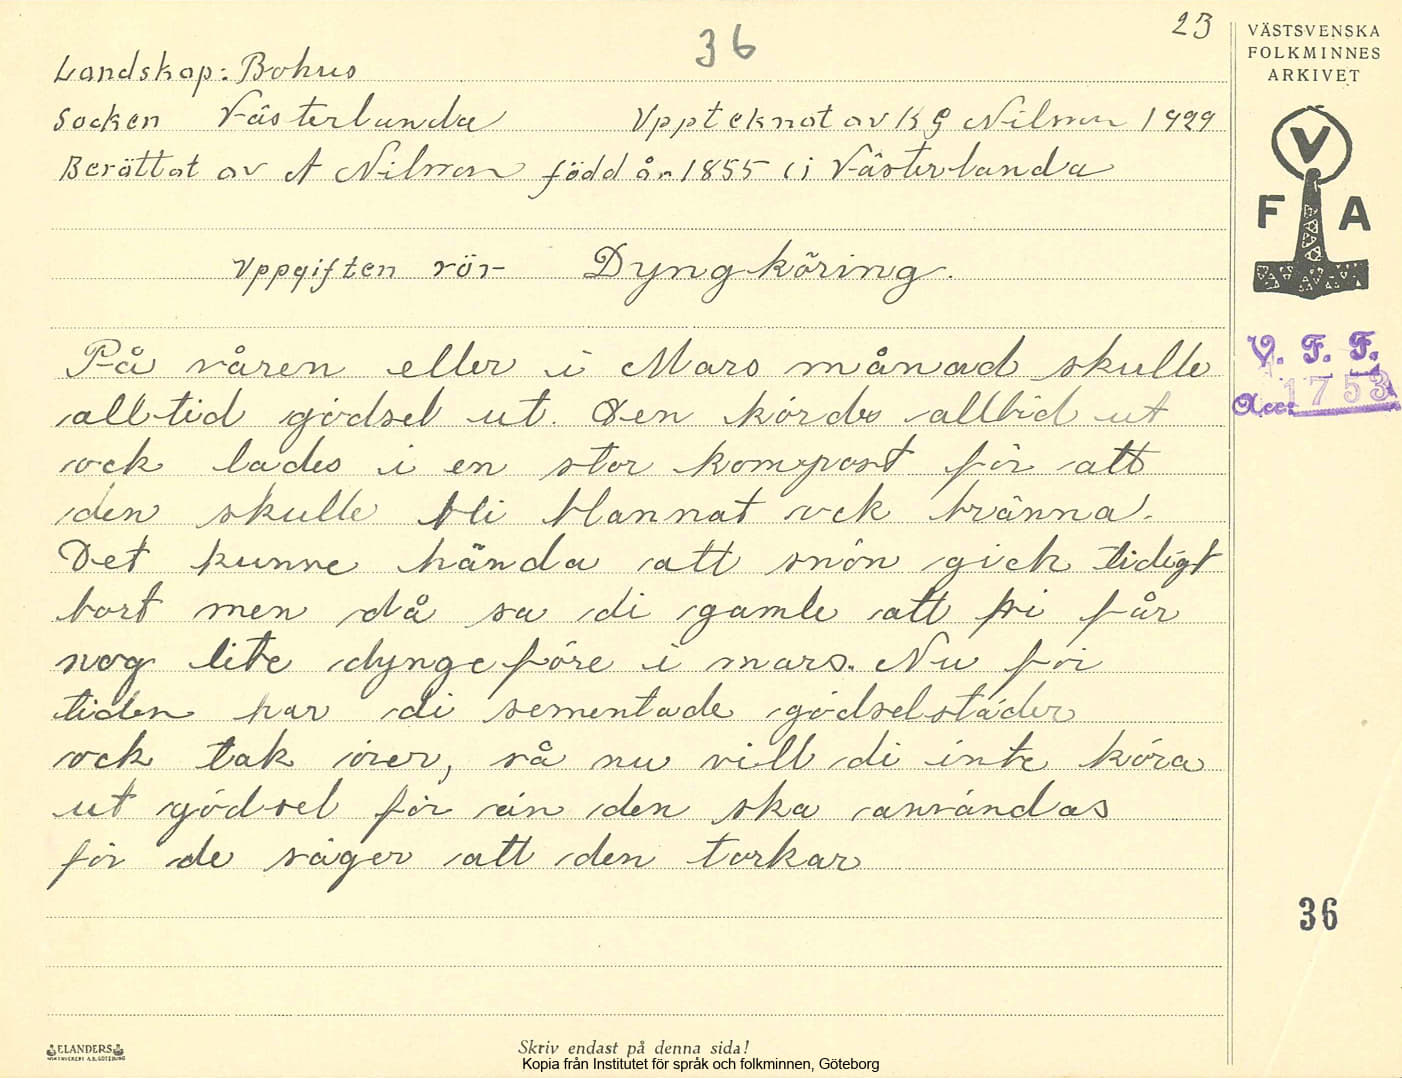 23
36
VÄSTSVENSKA
FOLKMINNES
ARKIVET
Landskap: Bohus
Socken Västerlanda Upptecknat av K G Nilsson 1929
Berättat av A Nilsson född år 1855 i Västerlanda
V
F A
Uppgiften rör Dyngköring.
På våren eller i Mars månad skulle
alltid gödsel ut. Den kördes alltid ut
ock lades i en stor kompost för att
den skulle bli blannat ock bränna.
Det kunne hända att snön gick tidigt
bort men då sa di gamle att vi får
nog lite dyngeföre i mars. Nu för
tiden har di sementade gödselstäder
ock tak över, så nu vill di inte köra
ut gödsel för än den ska användas
för de säger att den torkar
V. F. F.
Acc: 1753
36
ELANDERS
Skriv endast på denna sida!
Kopia från Institutet för språk och folkminnen, Göteborg